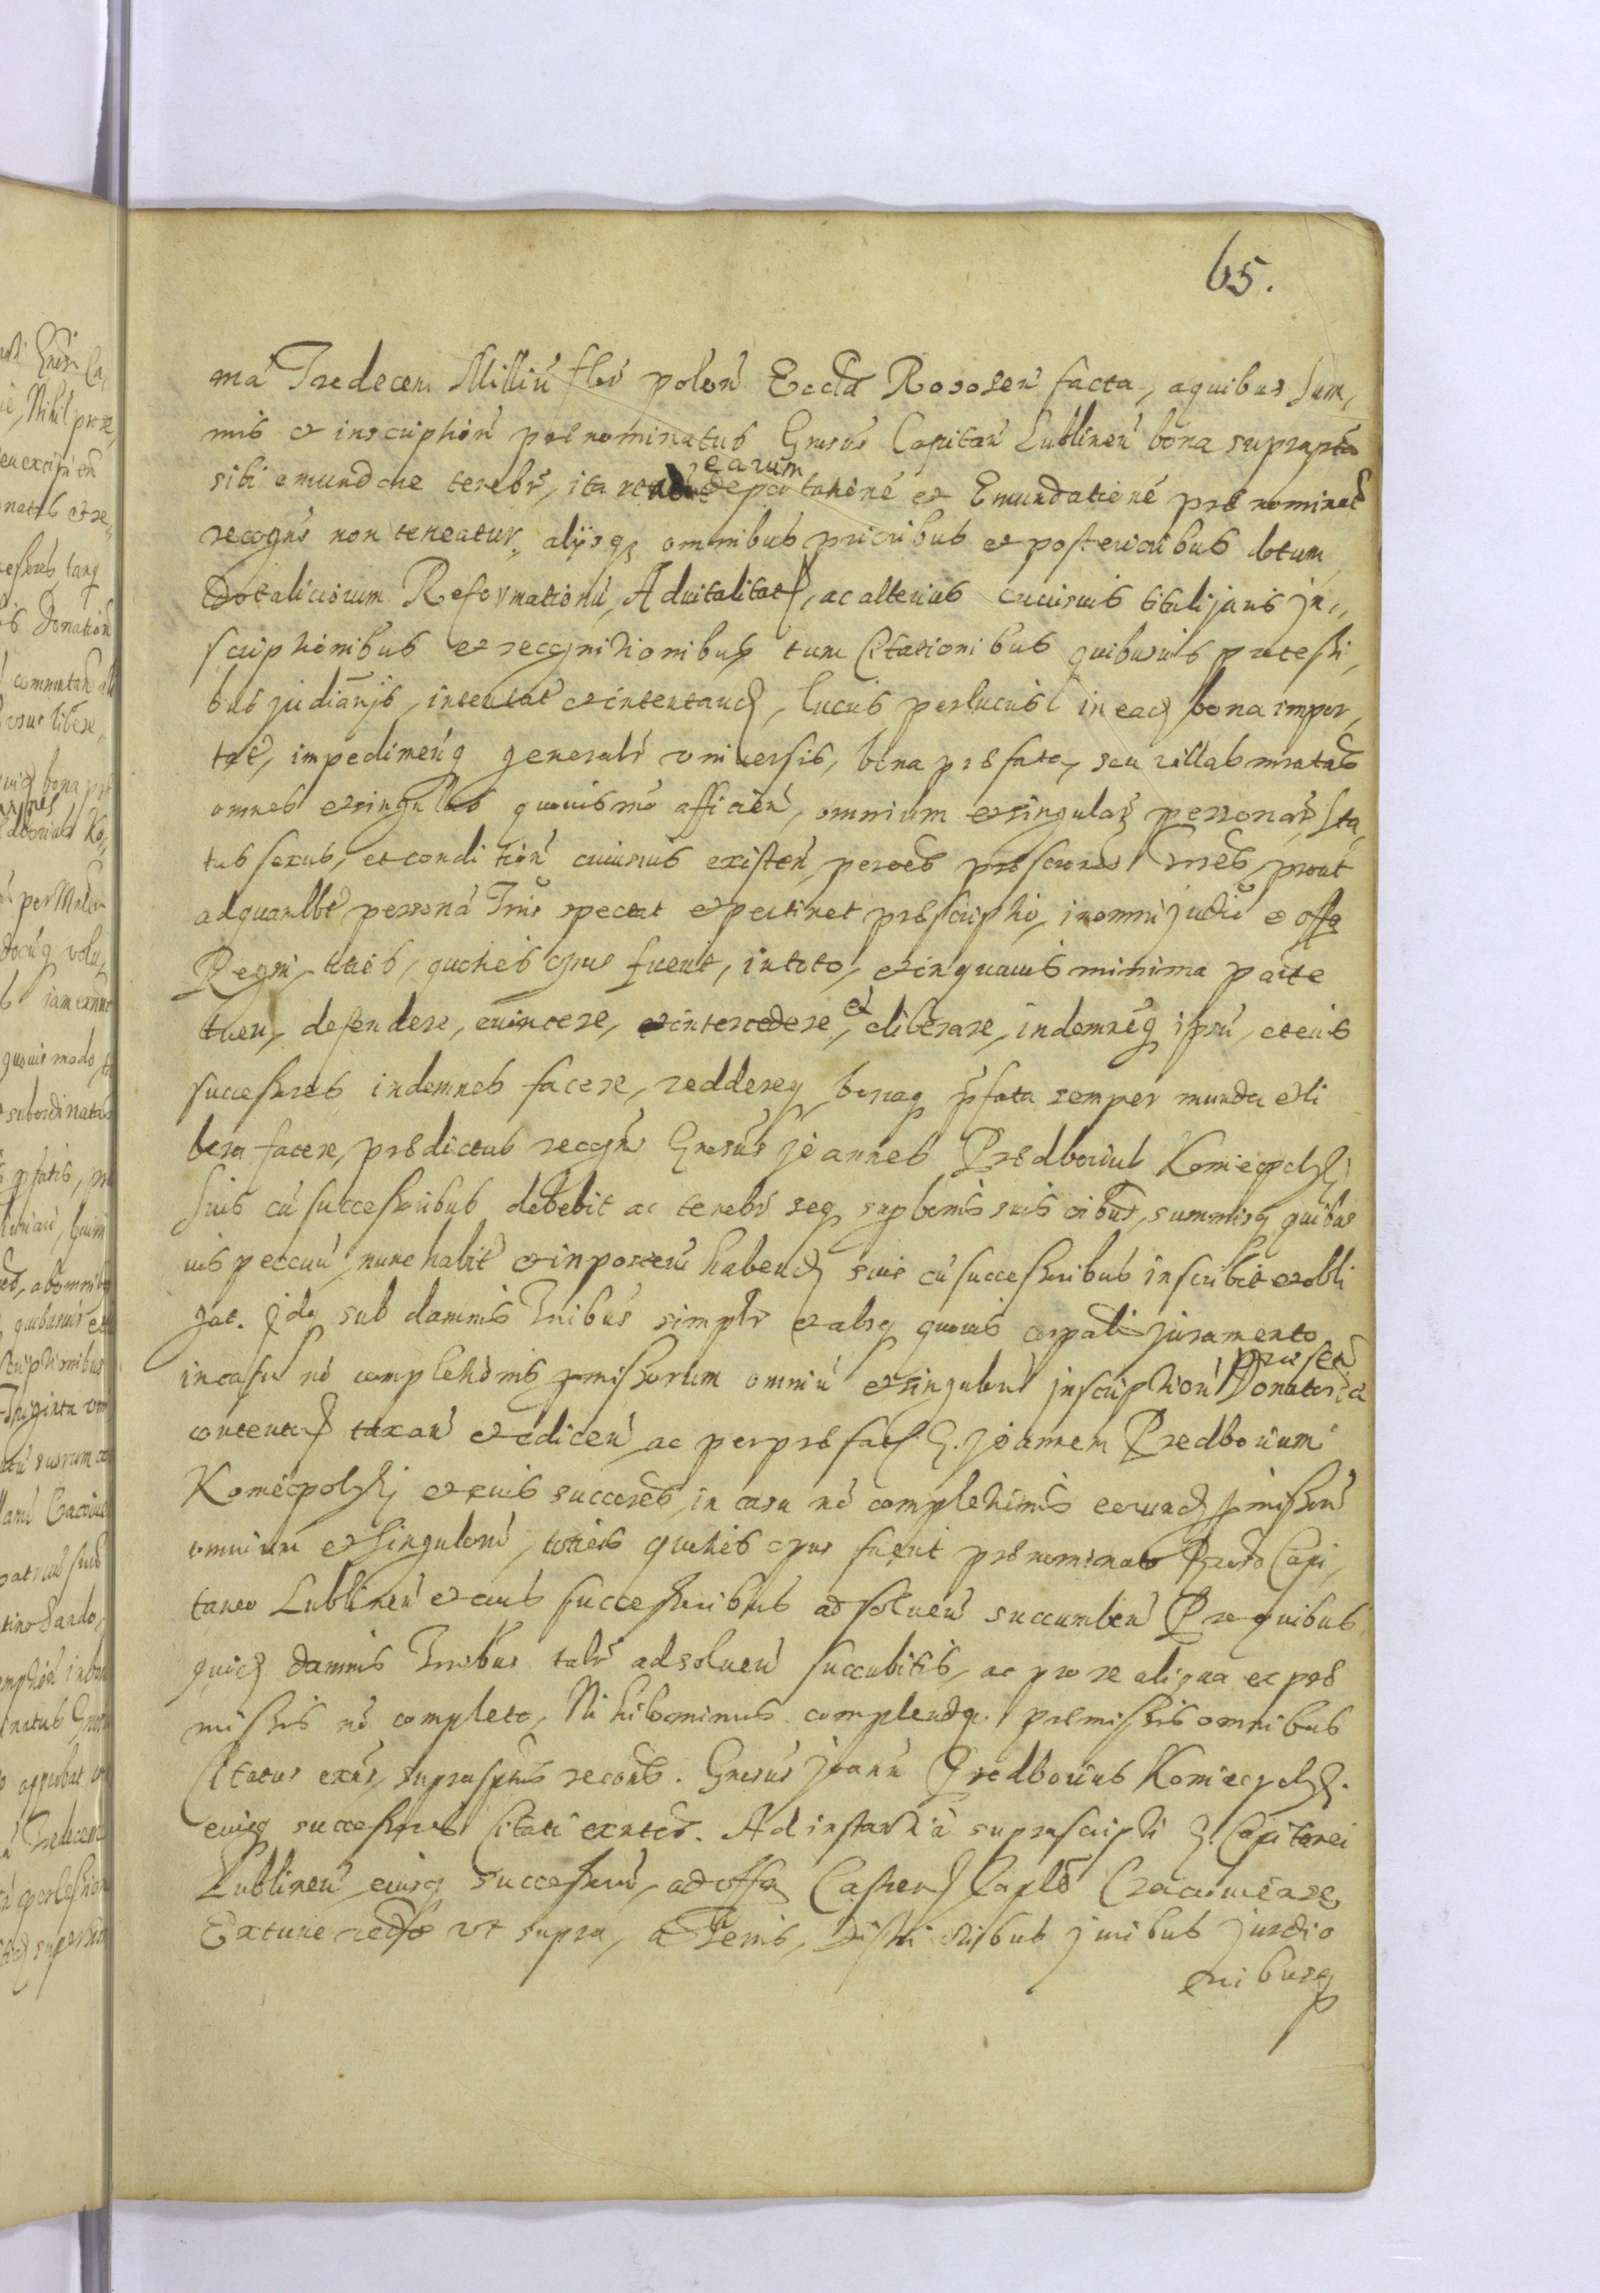 65.
ma Tredecem Milliu flor polon Eccla Rososen facta, a quibus Sum,
mis et inscription prenominatus Gnosus Capitan Lublinen bona suprapta
sibi emundare tenebr, ita earum deportatione et Emundatione prenominat
recogns non teneatur, alijsq omnibus prioribus et posterioribus dotum
Dotaliciorum Reformationu, Aduitalitat, ac alterius cuiusuis tituli juris jn,,
scriptionibus et recognitionibus tum Citationibus quibusuis protesti,
bus judiarijs, intentat et intentand, lucris perlucris in ead bona impor,
tat, impedimenq generalr vniuersis, bona prefata, seu villas
omnes et singulas quouismo afficien, omnium et singular personar, Sta,
tus sexus, et condition cuiusuis existen, per prout
adquamlbt persona Trrie spectat et pertinet prescriptio, in omni judicio et offo
Regni, toties, quoties opus fuerit, in toto, et in quauis minima parte
tueri, defendere, euincere, et intercedere, et eliberare, indemneq ipsu, et eius
successores indemnes facere, reddereq, bonaq pfata semper munda et li
bera facere, predictus recogns Gnosus Joannes Predborius Koniecpolskj
suis cu successoribus debebit ac tenebr seq sup bonis suis oibus, summisq quibus
uis pecun, nunc habit et in poster habend suis cu successoribus inscribit et obli
gat. Idq sub damnis Trribus simplr et absq quouis corpali juramento
in casu no completionis pmissorum omniu et singulor jnscription Donatoria presen
content taxan et edicen ac per prefat G. Joannem Predborium
Koniecpolskj et eius succores, in casu no completionis eorund pmissor
omnium et singulor, toties quoties opus fuerit prenominato Gnoso Capi,
taneo Lublinen et eius successoribus ad soluen succumben Pro quibus
quid damnis Trribus talr ad soluen succubitis, ac pro re aliqua ex pre
missis no completo, Nihilominus complendo. premissis omnibus
Citatus exns, suprasptus recons. Gnosus Joann Predborius Koniecpolsk.
eiusq successores Citati exntes. Ad instantia suprascripti G. Capitanei
Lublinen eiusq successor, ad offa Castren Caple Cracouien
Extunc vt supra, a Terris, Districtibus juribus jurdio
nibusq